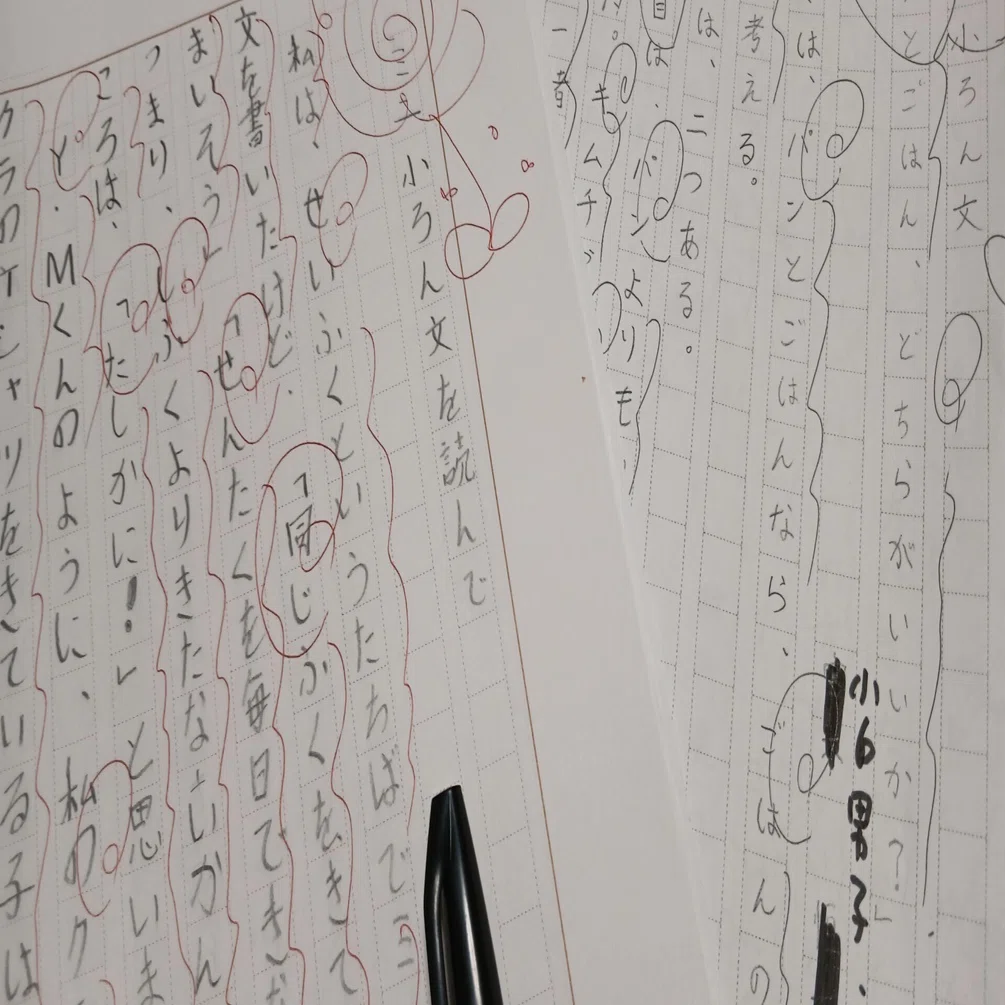 小ろん文
とごはん、どちらがいいか?」
は、パンとごはんなら、ごはんの
考える。
は、二つある。
目は、パンよりも、
小6男子
小ろん文を読んで
私は、せいふくというたちばで
文を書いたけど、「同じふくをきて
まいそう」「せんたくを毎日でき
つまり、しふくよりきたないかん
ころは、「たしかに!」と思いま
と、Mくんのように、私のク
ラのTシャツをきている子は